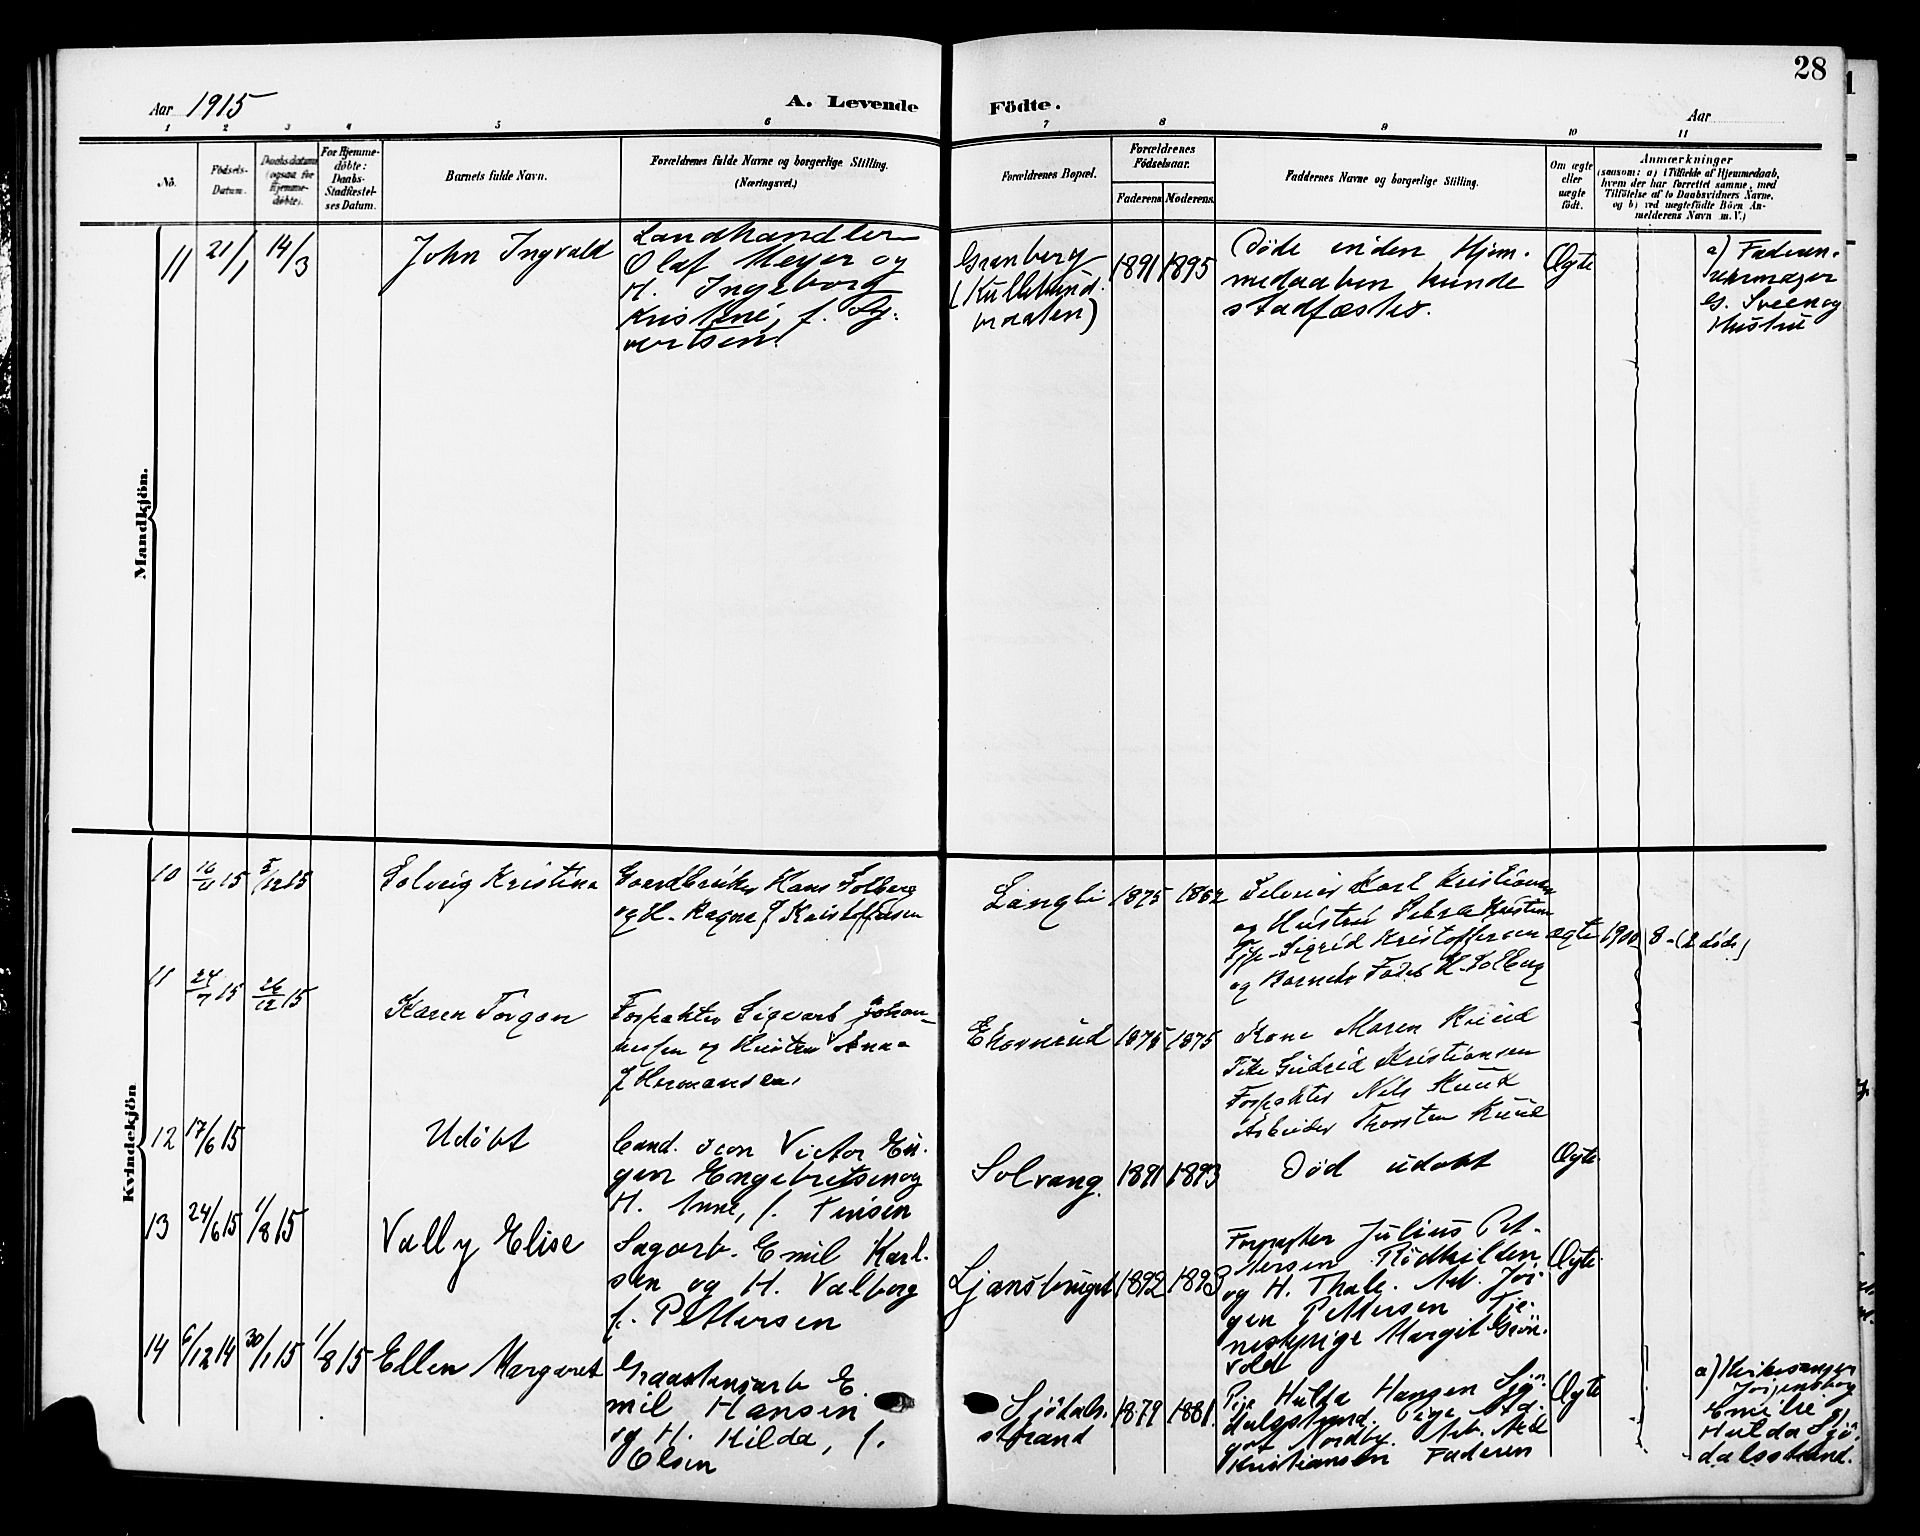 28
Aar 1915
A. Levende Födte.
Aar
1 2 3 4 5 6 7 8 9 10 11
No.
Födsels-Datum.
Daabsdatum (ogsaa for Hjemme-döbte).
For Hjemme-döbte: Daabs-Stadfæstel-ses Datum.
Barnets fulde Navn.
Forældrenes fulde Navne og borgerlige Stilling.
(Næringsvei.)
Forældrenes Bopæl.
Forældrenes Födselsaar.
Faderens Moderens.
Faddernes Navne og borgerlige Stilling.
Om ægte eller uægte födt.
Anmærkninger
(saasom: a) i Tilfælde af Hjemmedaab,
hvem der har forrettet samme, med
Tilföielse af to Daabsvidners Navne,
og b) ved uægtefödte Börn An-
melderens Navn m. V.)
Mandkjön.
11 21/1 14/3 John Ingvald
Landhandler
Olaf Meyer og
H. Ingeborg
Kristine, f. Sy-
vertsen.
Granberg
1891 1895
Döde inden Hjem-
medaaben kunde
stadfæstes.
Ægte
a) Faderen
G. Sveen og
Hustru
Kvindekjön
10 5/12 15 Solveig Kristina
Gaardbruker Hans Solberg
og H. Ragna f Kristoffersen
Langli 1875
Karl Kristiansen
og Hustru
Sigrid Kristoffersen ægte 1900 8 - (2 döde)
og Barnets Fader H. Solberg
11 24/7 15 26/12 15 Karen Torgon
Forpakter Sigvart Johan-
nesen og Hustru Anna
f Hermansen.
Ekornrud 1875 1875
Kone Maren Kruud
Gudrid Kristiansen
Forpakter Nils
Arbeider Thorsten
12 17/6 15 Udöbt
Cand. oecon Victor Eu-
gen Engebretsen og
H. Anne, f.
Solvang. 1891 1893
Död udöbt
Ægte.
13 24/6 15 1/8 15 Vally Elise
Sagarb. Emil Karl-
sen og H. Valborg
f. Pettersen
Ljansbruget 1892 1893
Forpakter Julius Pet-
tersen
og H. Thale. Arb. Jör-
gen Pettersen Tje-
nestepige Margit Grön-
vold
Ægte.
14 6/12 14 30/1 15 1/8 15 Ellen Margaret
Graastensarb E-
mil Hansen
og H. Hilda, f.
Olsen
Sjödals-
strand
1879 1881.
Pige Hulda Hansen Sjö-
dalsstrand. Pige
Nordby. Arb.
Kristiansen Faderen
Ægte
a) Kirkesanger
Emilie
Hulda Sjö-
dalsstrand.